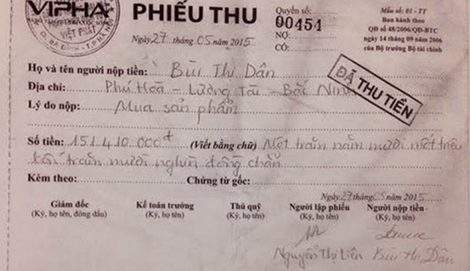 VIPHA
VIỆT PHÁT
Q. BA ĐÌNH - T.P HÀ NỘI
PHIẾU THU
Ngày 27 tháng 05 năm 2015
Quyển số:
00454
NỢ:
CÓ:
Mẫu số: 01 - TT
Ban hành theo
QĐ số 48/2006/QĐ-BTC
ngày 14 tháng 09 năm 2006
của Bộ trưởng Bộ tài chính
Họ và tên người nộp tiền: Bùi Thị Dân
Địa chỉ: Phú Hoà - Lương Tài - Bắc Ninh
ĐÃ THU TIỀN
Lý do nộp: Mua sản phẩm
Số tiền: 151.410.000đ (Viết bằng chữ) Một trăm năm mươi một triệu
bốn trăm mười nghìn đồng chẵn
Kèm theo: Chứng từ gốc:
Ngày 27 tháng 05 năm 2015
Giám đốc Kế toán trưởng Thủ quỹ Người lập phiếu Người nộp tiền
(Ký, họ tên, đóng dấu) (Ký, họ tên) (Ký, họ tên) (Ký, họ tên) (Ký, họ tên)
Nguyễn Thị Liên Bùi Thị Dân